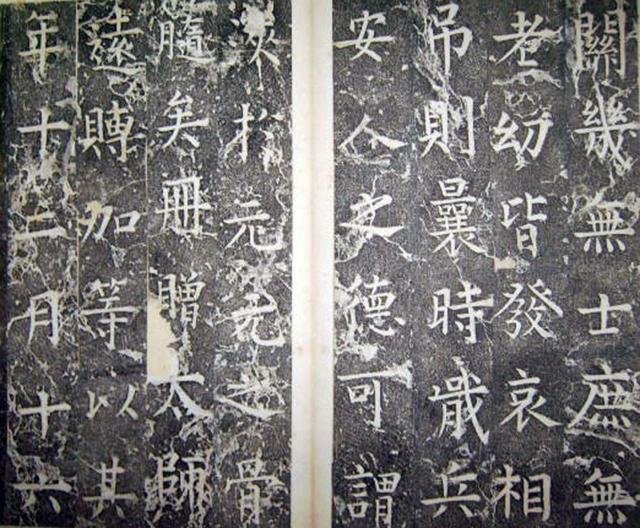 關幾無士庶無
老幼皆發哀相
吊則曩時戢兵
安人之德可謂
浹於元元之骨
髓矣冊贈太師
賻加等以其
年十二月十六